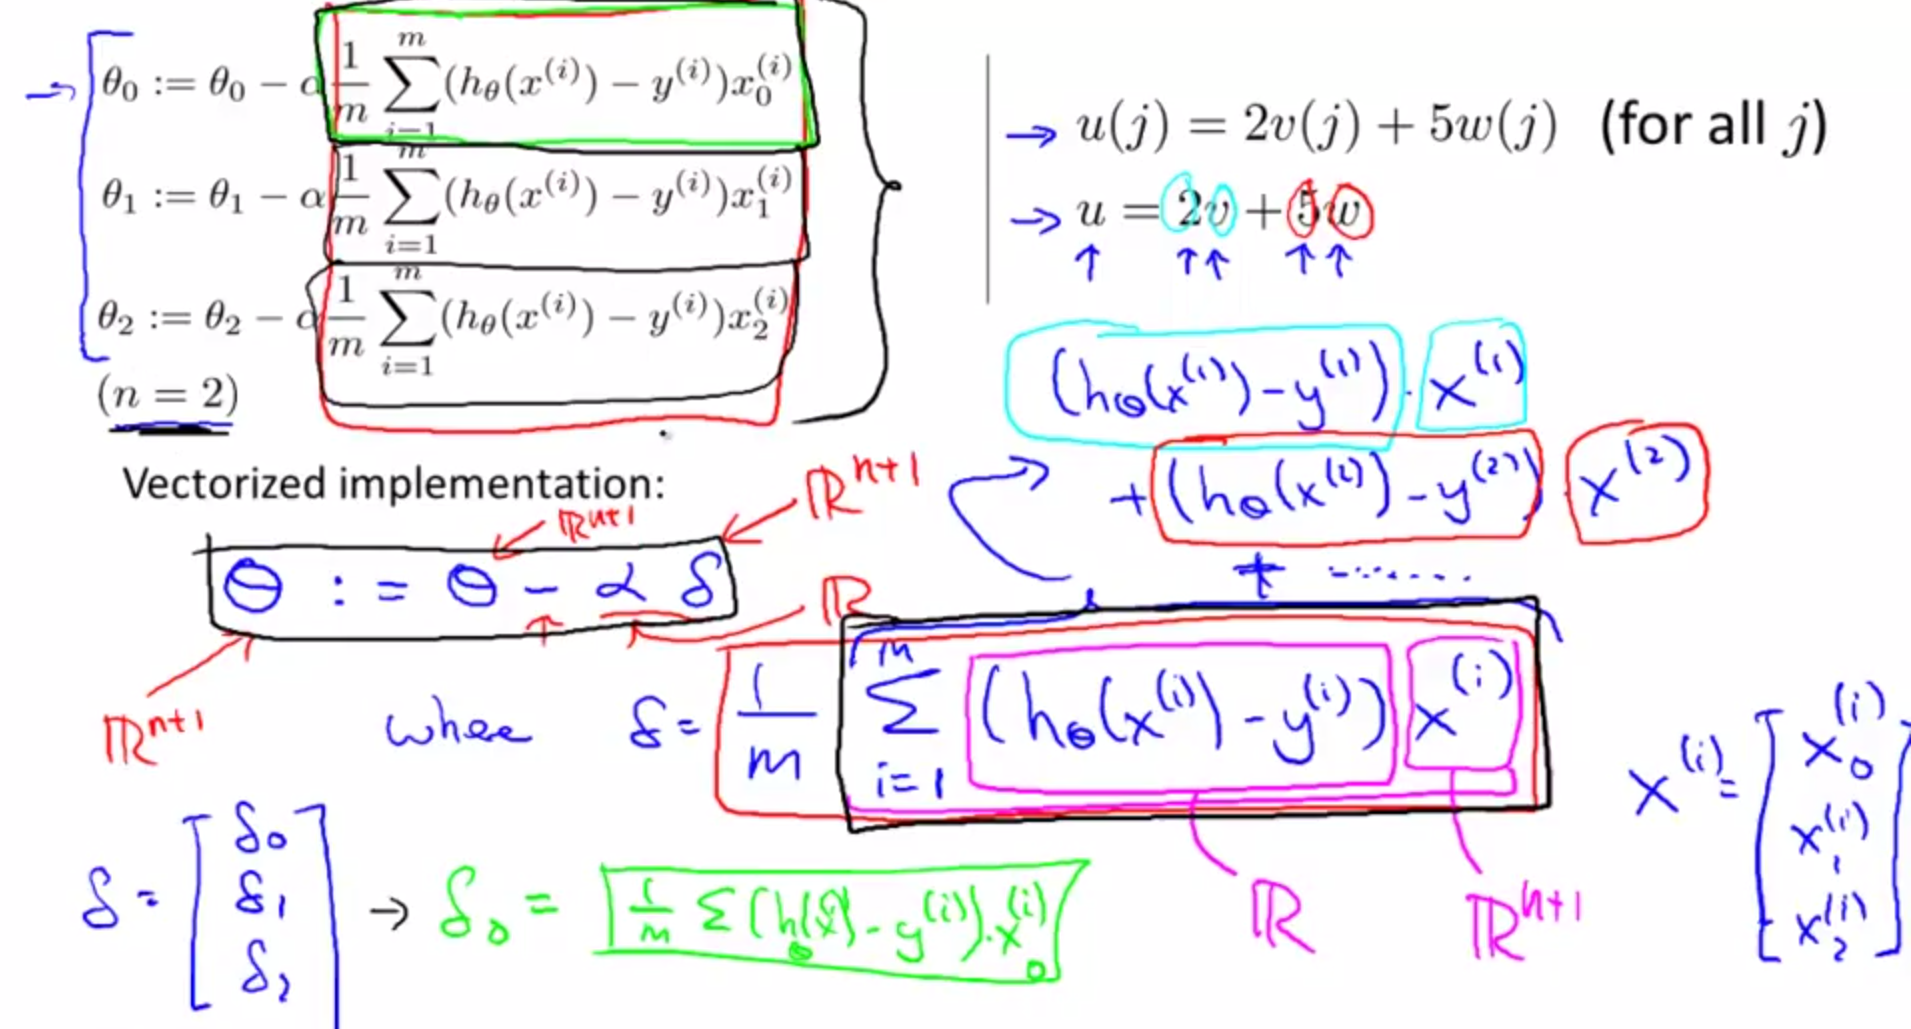 θ₀ := θ₀ − α 1/m ∑_{i=1}^{m} (h_θ(x^{(i)}) − y^{(i)}) x₀^{(i)}
θ₁ := θ₁ − α 1/m ∑_{i=1}^{m} (h_θ(x^{(i)}) − y^{(i)}) x₁^{(i)}
θ₂ := θ₂ − α 1/m ∑_{i=1}^{m} (h_θ(x^{(i)}) − y^{(i)}) x₂^{(i)}
(n = 2)
→ u(j) = 2v(j) + 5w(j) (for all j)
→ u = 2v + 5w
(h_θ(x^{(1)}) − y^{(1)}) · x^{(1)}
+ (h_θ(x^{(2)}) − y^{(2)}) x^{(2)}
+ .......
Vectorized implementation:
ℝ^{n+1}
ℝ^{n+1}
θ := θ − α δ
ℝ
ℝ^{n+1}
where δ = 1/m ∑_{i=1}^{m} (h_θ(x^{(i)}) − y^{(i)}) x^{(i)}
ℝ
ℝ^{n+1}
x^{(i)} = [x₀^{(i)}
x₁^{(i)}
x₂^{(i)}]
δ = [δ₀
δ₁
δ₂]
→ δ₀ = 1/m ∑ (h_θ(x^{(i)}) − y^{(i)}) · x₀^{(i)}